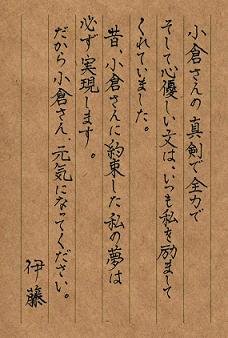 小倉さんの真剣で全力で
そして心優しい文は、いつも私を励まして
くれていました。
昔、小倉さんに約束した私の夢は
必ず実現します。
だから小倉さん、元気になってください。
伊藤